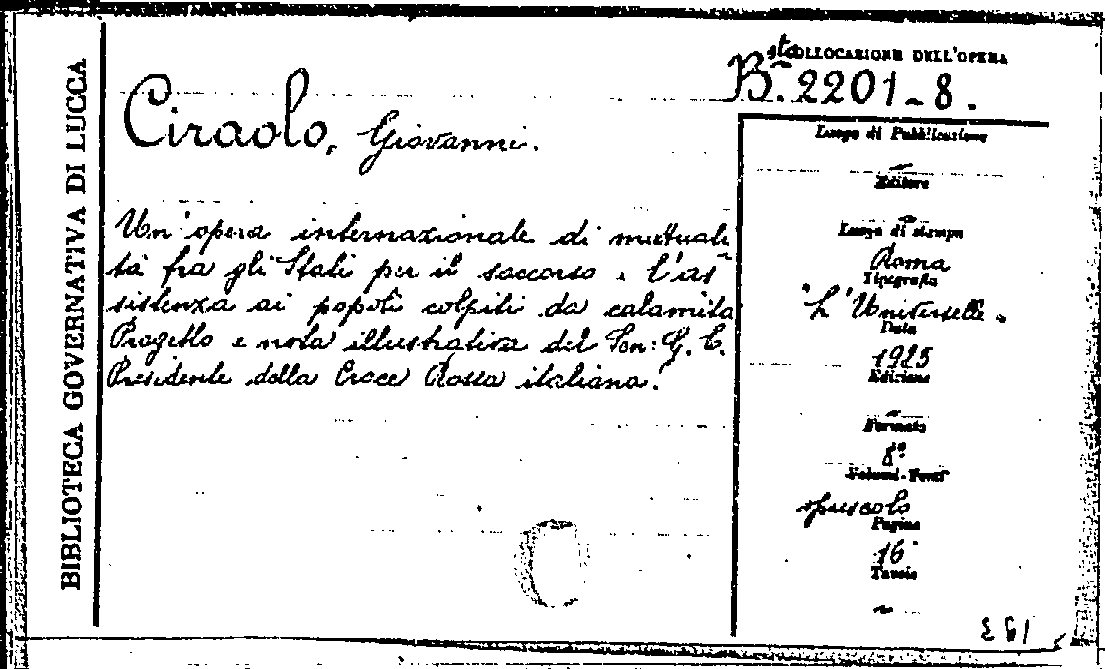 BIBLIOTECA GOVERNATIVA DI LUCCA
COLLOCAZIONE DELL'OPERA
Bᵗᵃ. 2201-8.
Ciraolo, Giovanni.
Un'opera internazionale di mutuali
tà fra gli Stati per il soccorso e l'as-
sistenza ai popoli colpiti da calamità
Progetto e nota illustrativa del Sen: G. C.
Presidente della Croce Rossa italiana.
Luogo di Pubblicazione
~
Editore
~
Luogo di stampa
Roma
Tipografia
"L'Universelle"
Data
1925
Edizione
~
Formato
8º
Volumi-Tomi
opuscolo
Pagine
16
Tavole
~